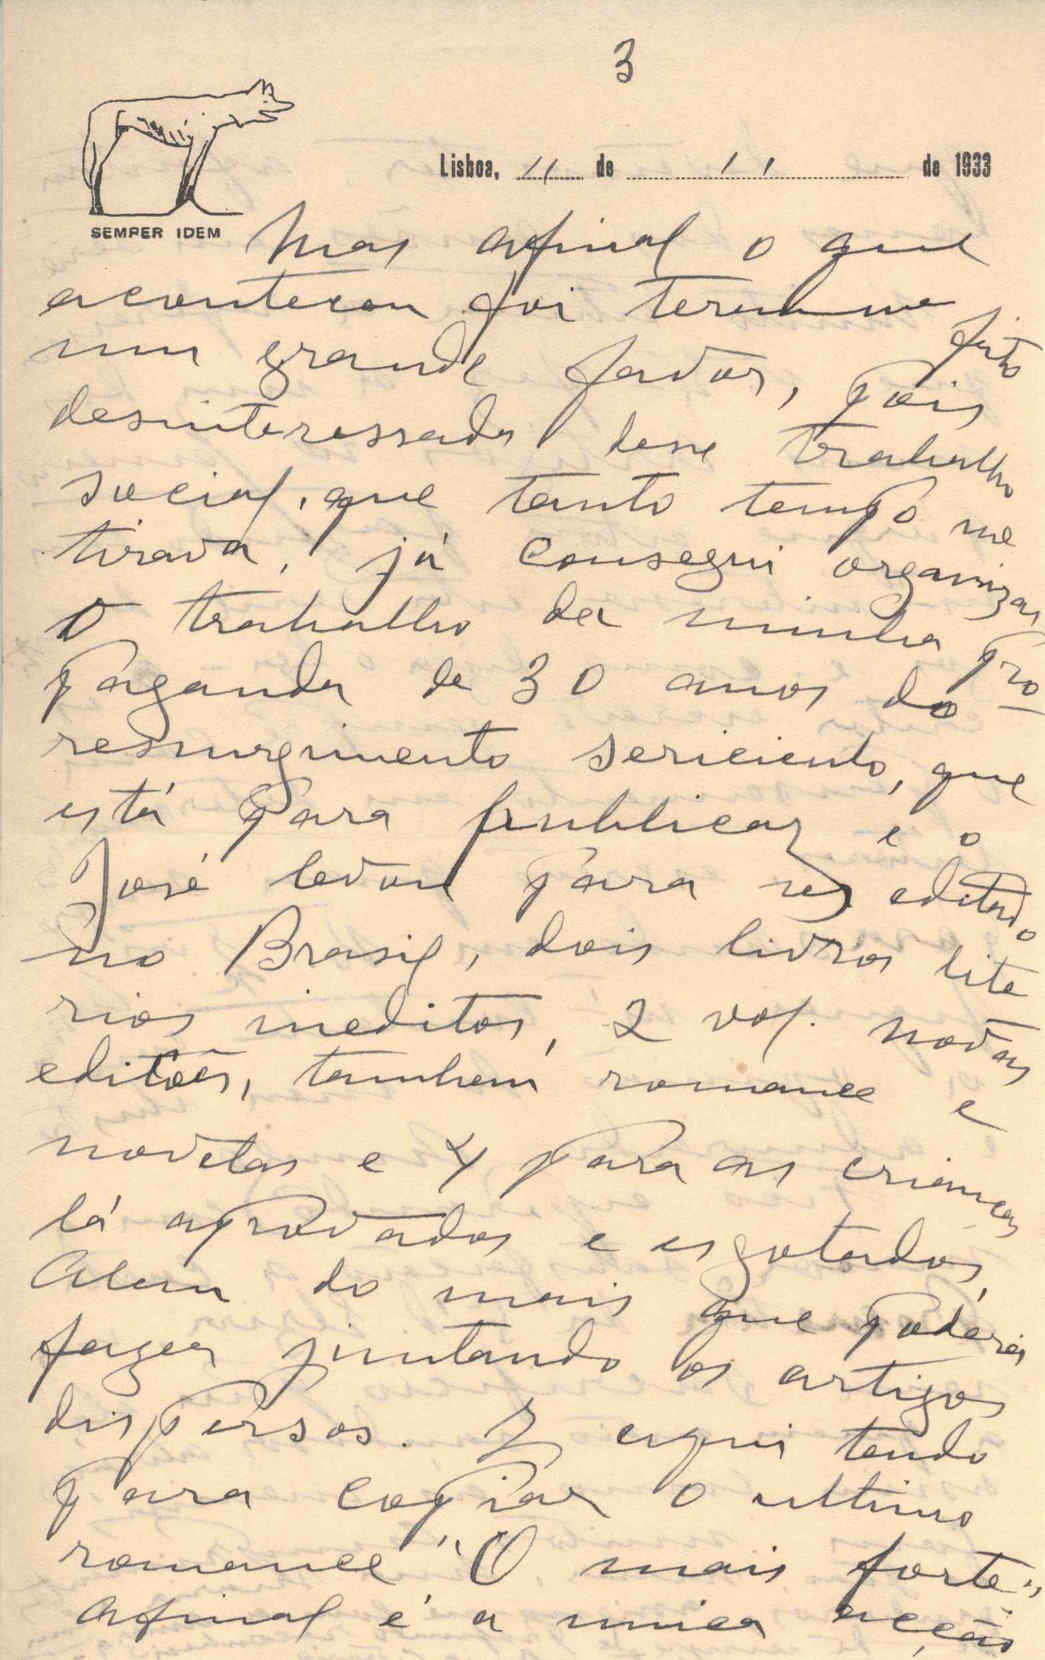 3
Lisboa, 11 de 11 de 1933
SEMPER IDEM
Mas afinal o que
aconteceu foi terem-me feito
um grande favor, pois
desinteressada desse trabalho
social, que tanto tempo me
tirava, já consegui organizar
o trabalho da minha pro-
paganda de 30 anos do
resurgimento sericicolo, que
está para publicar e o
José levou para ser editado
no Brasil, dois livros lite
rios ineditos, 2 vol. novas
edições, tambem romance e
novelas e 4 para as crianças
lá aprovados e esgotados,
Alem do mais que poderei
fazer juntando os artigos
dispersos. E aqui tendo
para copiar o ultimo
romance "O mais forte".
Afinal é a unica acção